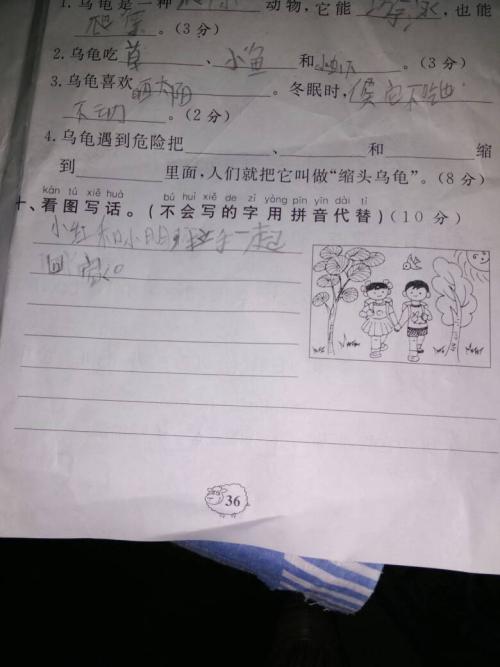 1.乌龟是一种 动物,它能 游泳,也能
爬行。(3分)
2.乌龟吃 草、小鱼和小虾。(3分)
3.乌龟喜欢 晒太阳。冬眠时,
不动。(2分)
4.乌龟遇到危险把、和缩
到里面,人们就把它叫做“缩头乌龟”。(8分)
kàn tú xiě huà bú huì xiě de zì yòng pīn yīn dài tì
十、看图写话。(不会写的字用拼音代替)(10分)
小红和小明 手一起
回家。
36